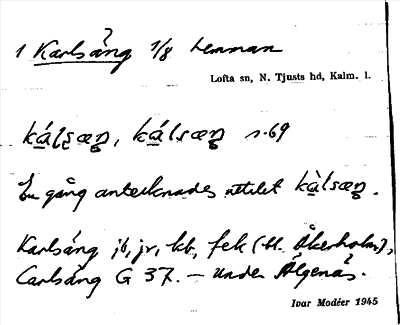 1 Karlsäng 1/8 hemman
Lofta sn, N. Tjusts hd, Kalm. l.
kálsæŋ, kálsæŋ s. 69
En gång antecknades uttalet kàlsæŋ.
Karlsäng jb, jr, kb, fek (bl. Åkerholm),
Carlsäng G 37. – under Älgenäs.
Ivar Modéer 1945